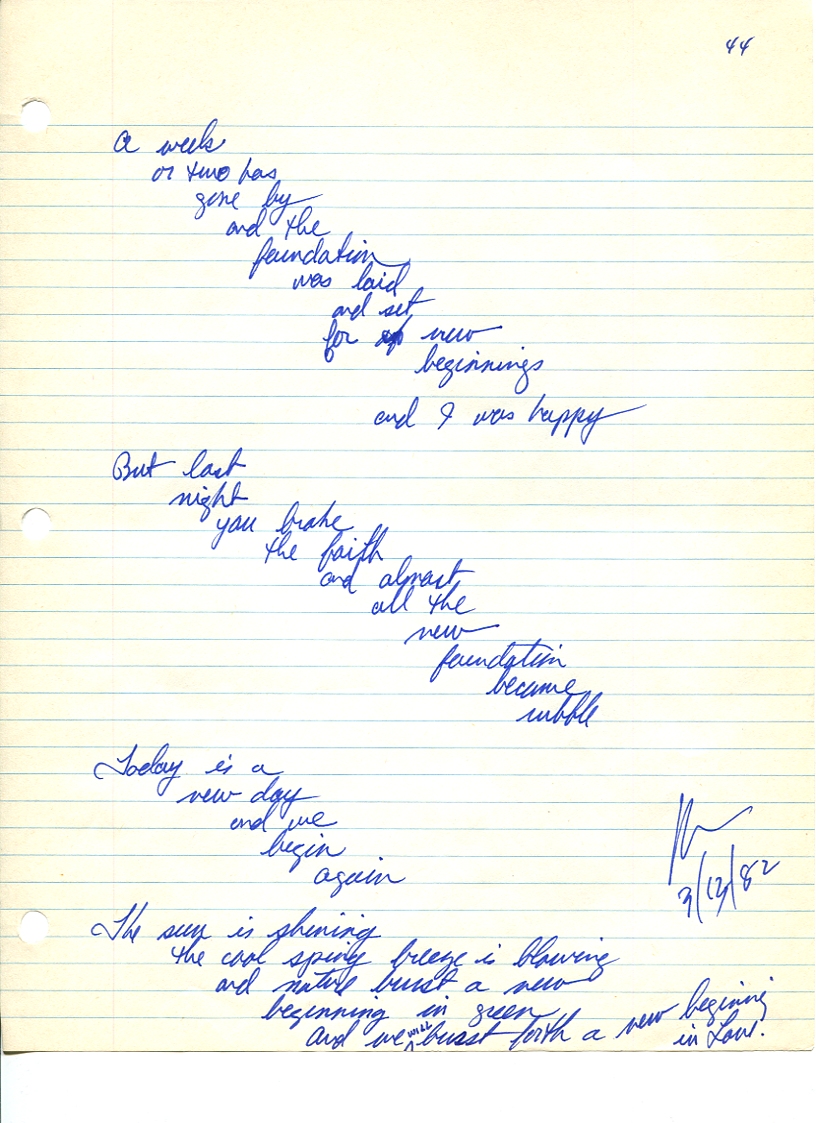 44
A week
or two has
gone by
and the
foundation
was laid
and set
for new
beginnings
and I was happy
But last
night
you broke
the faith
and almost
all the
new
foundation
became
rubble
Today is a
new day
and we
begin
again
3/13/82
The sun is shining
the cool spring breeze is blowing
and nature burst a new
beginning in green
And we will burst forth a new begining
in Love.